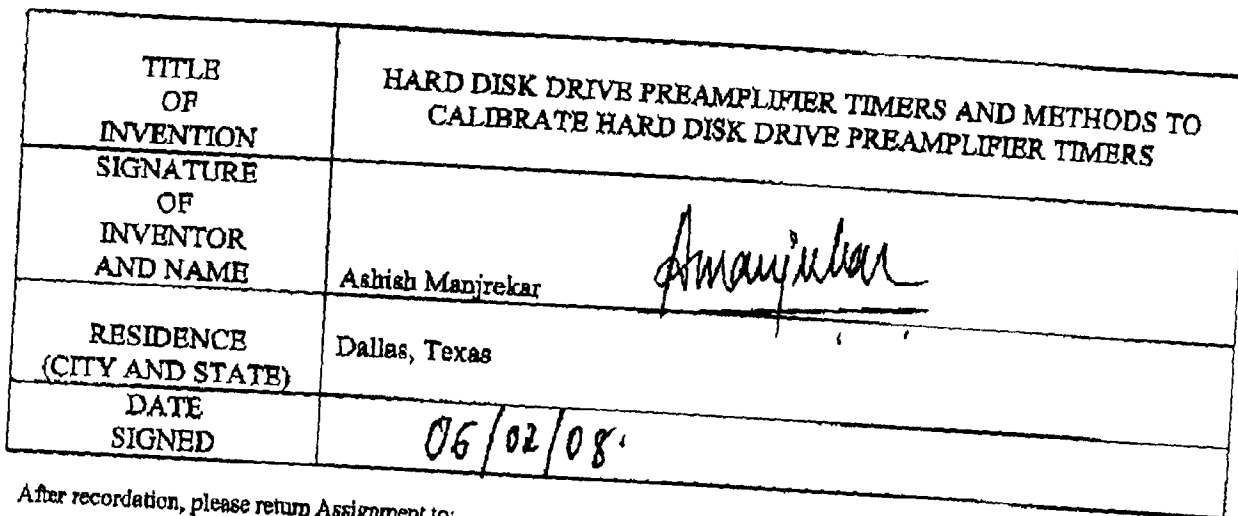 TITLE
OF
INVENTION
HARD DISK DRIVE PREAMPLIFIER TIMERS AND METHODS TO
CALIBRATE HARD DISK DRIVE PREAMPLIFIER TIMERS
SIGNATURE
OF
INVENTOR
AND NAME
Ashish Manjrekar
Amanjrekar
RESIDENCE
(CITY AND STATE)
Dallas, Texas
DATE
SIGNED
06/02/08
After recordation, please return Assignment to: